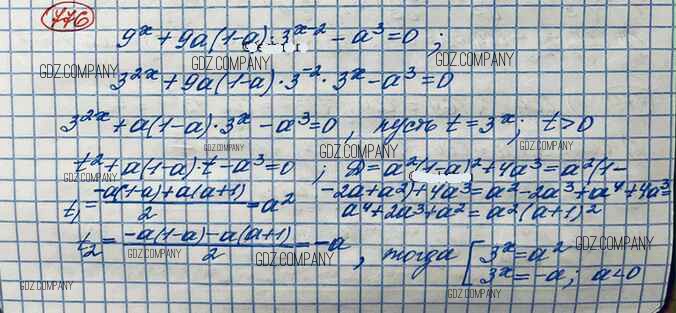 776
9^x + 9a(1-a)·3^{x-2} - a^3 = 0 ;
GDZ.COMPANY GDZ.COMPANY
3^{2x} + 9a(1-a)·3^{-2}·3^x - a^3 = 0
3^{2x} + a(1-a)·3^x - a^3 = 0, пусть t = 3^x; t > 0
GDZ.COMPANY GDZ.COMPANY GDZ.COMPANY
t^2 + a(1-a)·t - a^3 = 0 ; D = a^2(1-a)^2 + 4a^3 = a^2(1-
GDZ.COMPANY GDZ.COMPANY
t_1 = \frac{-a(1-a)+a(a+1)}{2} = a^2 -2a+a^2)+4a^3 = a^2-2a^3+a^4+4a^3=
a^4+2a^3+a^2 = a^2(a+1)^2
t_2 = \frac{-a(1-a)-a(a+1)}{2} = -a, тогда [ 3^x = a^2
3^x = -a; a<0
GDZ.COMPANY GDZ.COMPANY GDZ.COMPANY
GDZ.COMPANY GDZ.COMPANY